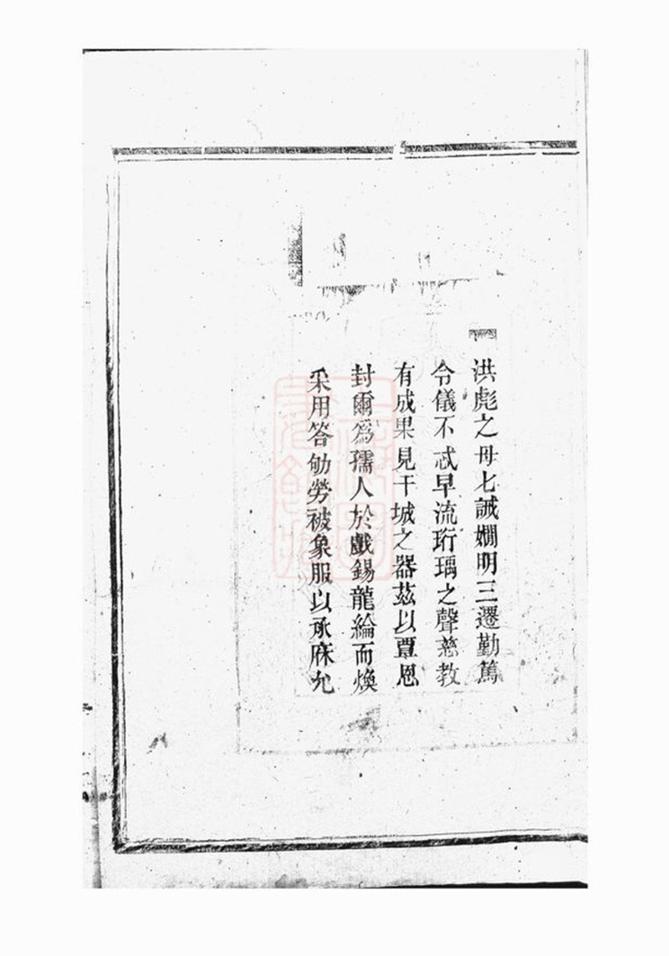 洪彪之母七誡嫺明三遷勤篤
令儀不忒早流珩瑀之聲慈教
有成果見干城之器茲以覃恩
封爾爲孺人於戲錫龍綸而煥
采用答劬勞被象服以承庥允